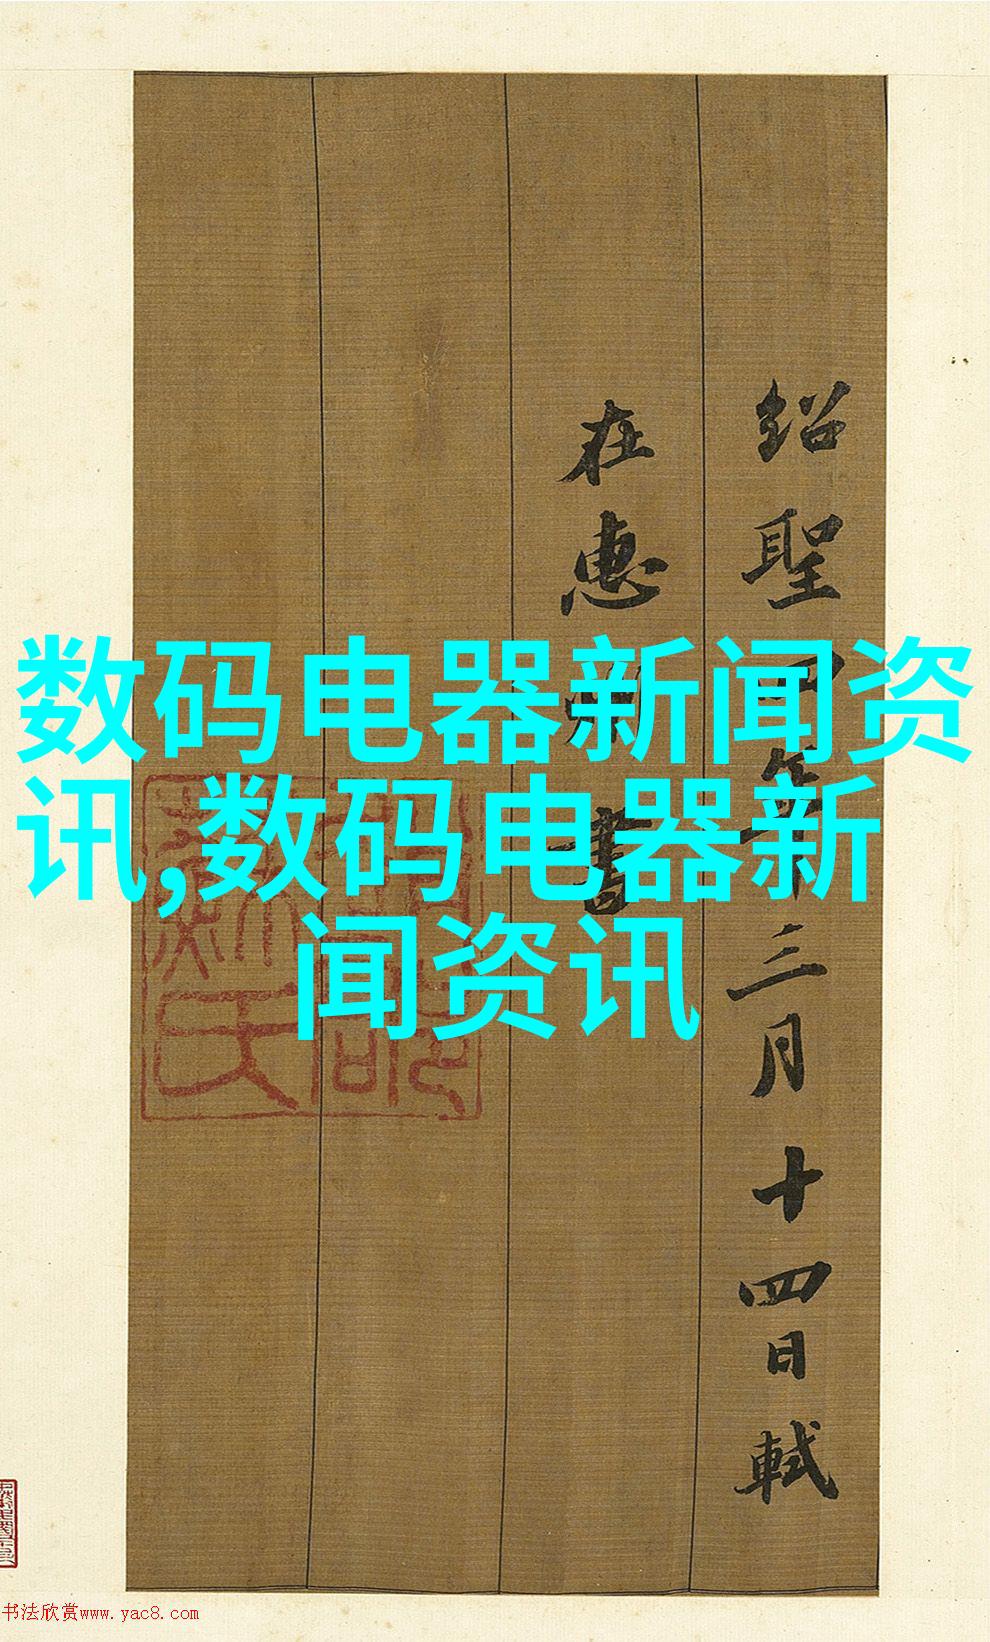 数码电器新闻资
讯,数码电器新
闻资讯
绍聖四年三月十四日軾
在惠州書
书法欣赏www.yac8.com